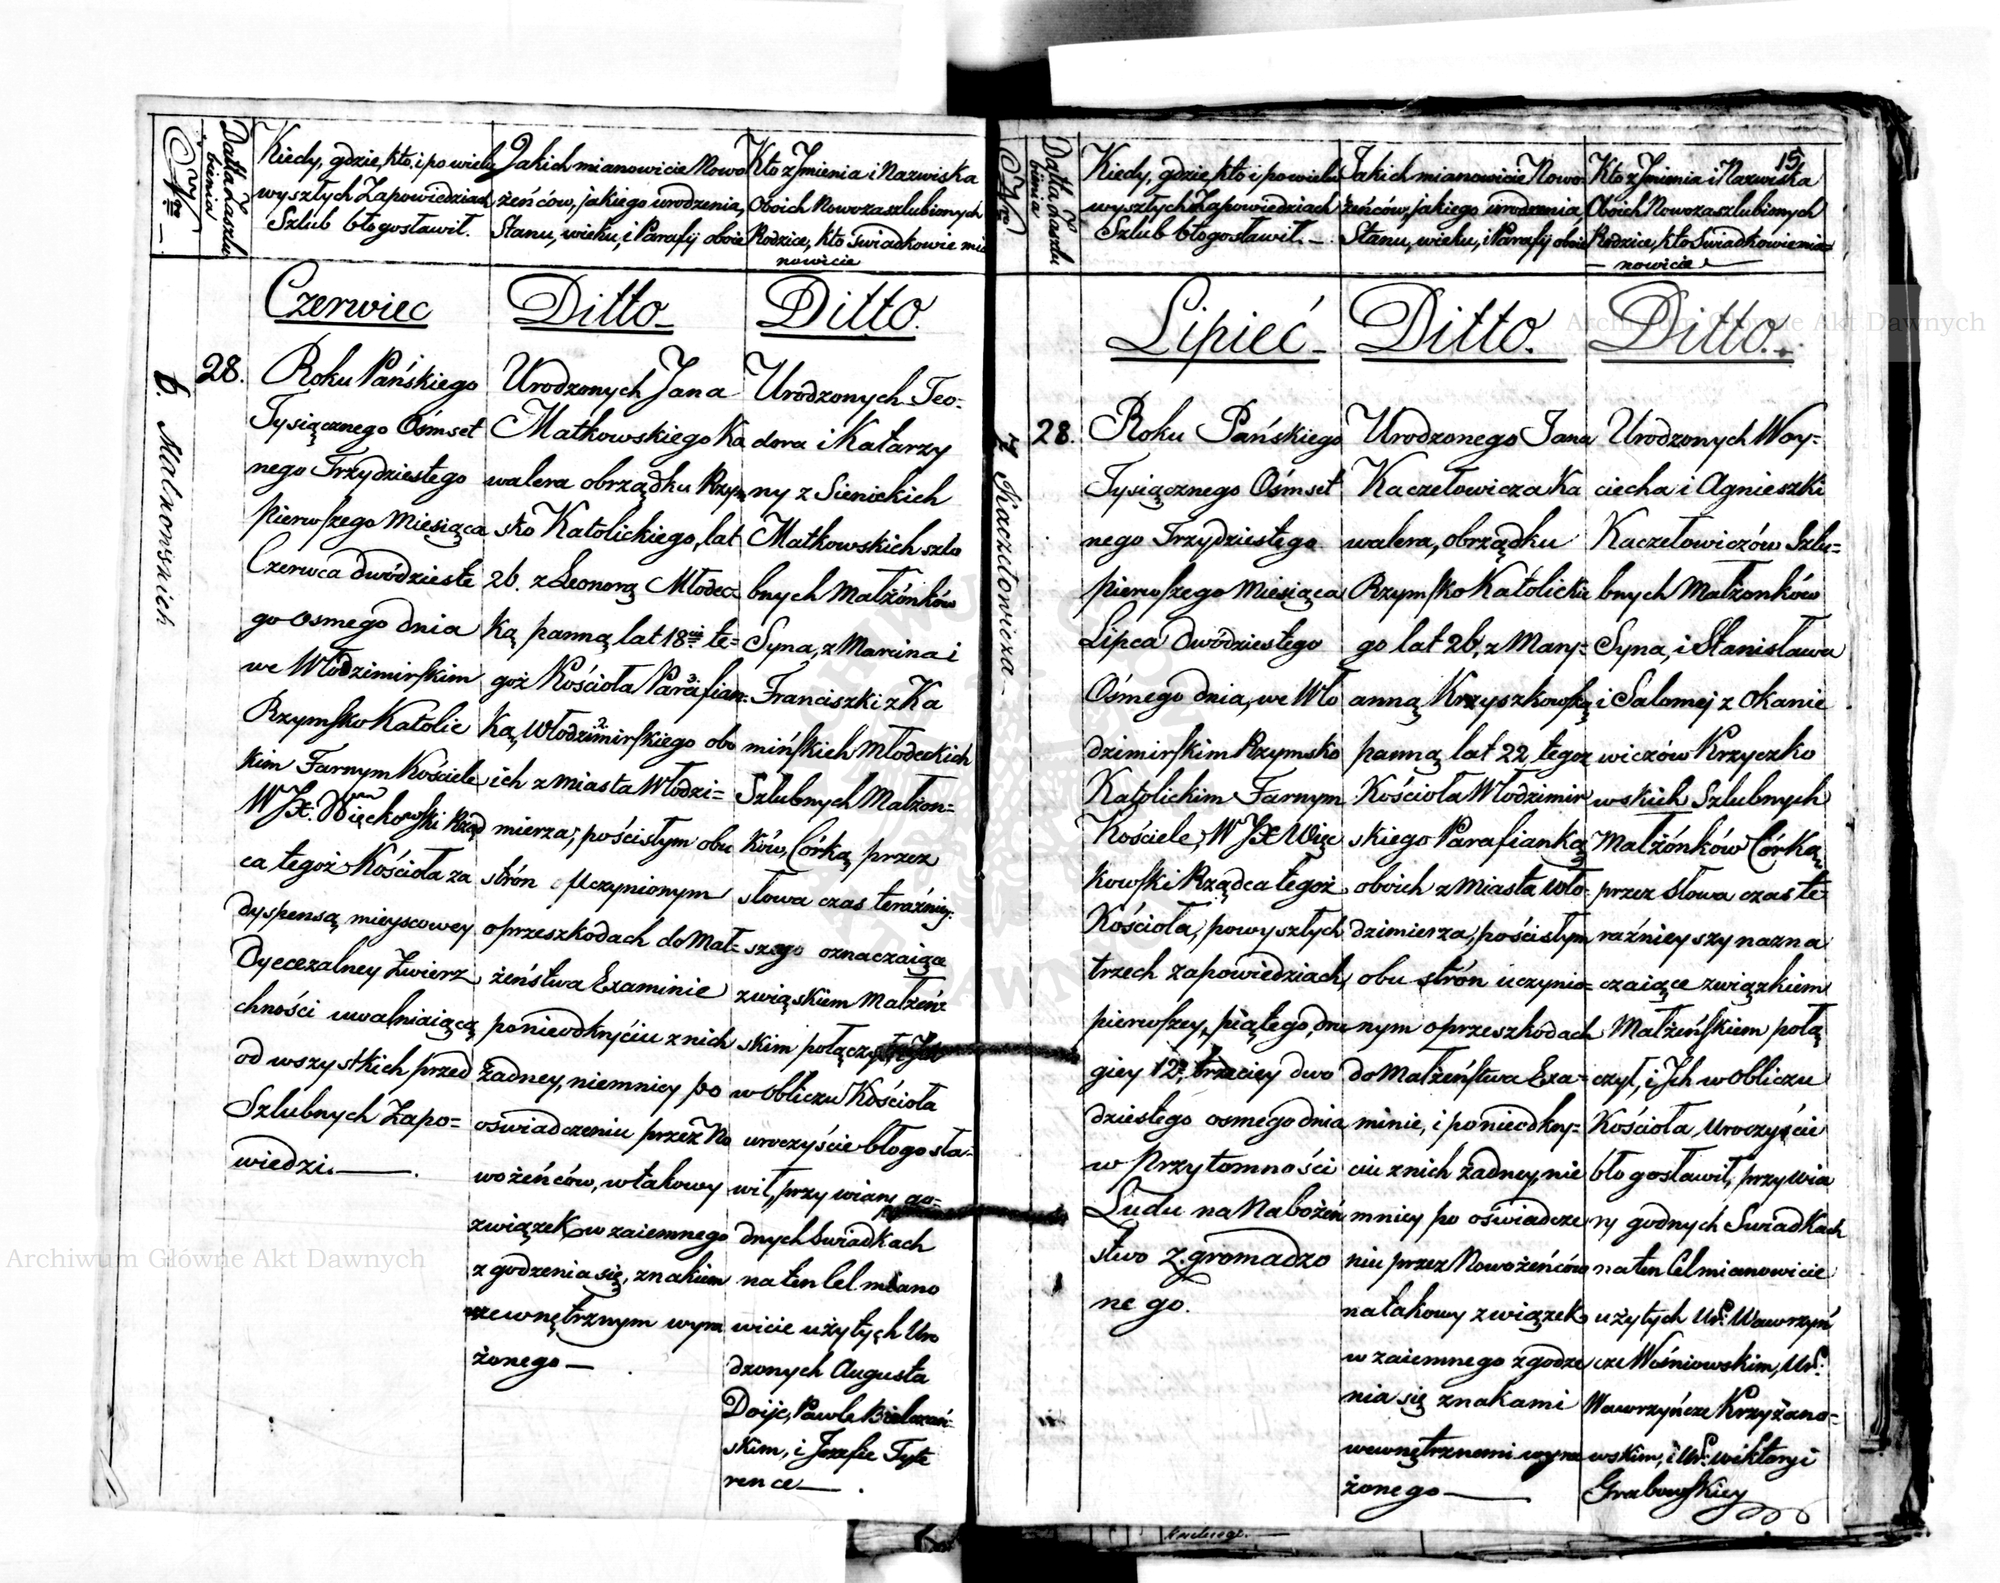 Nro
Datta Zaszlu
bienia
Kiedy, gdzie, kto, i po wielu
wyszłych Zapowiedziach
Szlub błogosławił.
Jakich mianowicie Nowo
żeńców, jakiego urodzenia,
Stanu, wieku, i Parafij oboie
Kto z Jmienia i Nazwiska
Oboich Nowozaszlubionych
Rodzice, kto Swiadkowie mia
nowicie
Czerwiec
Ditto
Ditto.
6. Malkowskich
28.
Roku Pańskiego
Tysiącznego Ośmset
nego Trzydziestego
pierwszego Miesiąca
Czerwca dwódzieste
go osmego dnia
we Włodzimirskim
Rzymsko Katolic
kim Farnym Kościele
WJX. Więckowski Rząd
ca tegoż Kościoła za
dyspensą mieyscowey
Dyecezalney Zwierz
chności uwalniaiącą
od wszystkich przed
Szlubnych Zapo=
wiedzi.
Urodzonych Jana
Małkowskiego Ka
walera obrządku Rzym
sko Katolickiego, lat
26. z Leonorą Młodec=
ką panną lat 18 te=
goż Kościoła Parafian=
ką, Włodzimirskiego obo
ich z miasta Włodzi=
mierza; pościsłym obu
strón uczynionym
oprzeszkodach do Mał=
żeństwa Examinie
ponieodkryciu z nich
żadney, niemniey po
oświadczeniu przez No
wożeńców, wtakowy
związek w zaiemnego
zgodzenia się, znakiem
zewnętrznym wyra
żonego
Urodzonych Teo=
dora i Katarzy
ny z Sienickich
Małkowskich szlu
bnych Małżónków
Syna, z Marcina i
Franciszki z Ka
mińskich Młodeckich
Szlubnych Małżon=
ków, Córką przez
słowa czas teraźniey=
szego oznaczaiące
związkiem Małżeń
skim połączył
w obliczu Kościoła
uroczyście błogosła=
wił, przy wiary go=
dnych Swiadkach
na ten Cel miano
wicie użytych Uro
dzonych Augusta
Doije, Pawle
skim, i Jozefie Tyte
rence
15
Nro
Datta Zaszlu
bienia
Kiedy, gdzie, kto i po wielu
wyszłych Zapowiedziach
Szlub błogosławił.
Jakich mianowicie Nowo
żeńców, jakiego urodzenia
Stanu, wieku, i Parafij oboie
Kto z Jmienia i Nazwiska
Oboich Nowozaszlubionych
Rodzice, kto Swiadkowie mia=
nowicie
Lipieć
Ditto.
Ditto.
7. Kaczełowicza
28.
Roku Pańskiego
Tysiącznego Ośmset
nego Trzydziestego
pierwszego Miesiąca
Lipca dwódziestego
Ośmego dnia, we Wło
dzimirskim Rzymsko
Katolickim Farnym
Kościele, WJX Więc
kowski Rządca tegoż
Kościoła, powyszłych
trzech zapowiedziach,
pierwszey, piątego, dru
giey 12, trzeciey dwo
dziestego osmego dnia
w Przytomności
Ludu na Nabożeń
stwo Zgromadzo
nego.
Urodzonego Jana
Kaczełowicza Ka
walera, obrządku
Rzymsko Katolickie
go lat 26, z Mary=
anną Krzyszkowską
panną lat 22, tegoż
Kościoła Włodzimir
skiego Parafianką
oboich z Miasta Wło=
dzimierza, pościsłym
obu strón uczynio=
nym oprzeszkodach
do Małżeństwa Exa=
minie, i ponieodkry=
ciu z nich żadney, nie
mniey po oświadcze
niu przez Nowożeńców
na takowy związek
w zaiemnego zgodze
nia się znakami
wewnętrznemi wyra
żonego
Urodzonych Woy=
ciecha i Agnieszki
Kaczełowiczów Szlu=
bnych Małżonków
Syna, i Stanisława
i Salomej z Okanie
wiczów Krzyczko
wskich Szlubnych
Małżónków Córką,
przez słowa czas te=
raźnieyszy nazna
czaiące związkiem
Małżeńskiem połą
czył, i Jch w Obliczu
Kościoła, Uroczyście
błogosławił, przy wia
ry godnych Swiadkach
na ten Cel mianowicie
użytych Ur: Wawrzyń
cze Wiśniowskim, Ur:
Wawrzyńcze Krzyżano=
wskim, i Ur: Wiktoryi
Grabowskiey
Archiwum Główne Akt Dawnych
Archiwum Główne Akt Dawnych